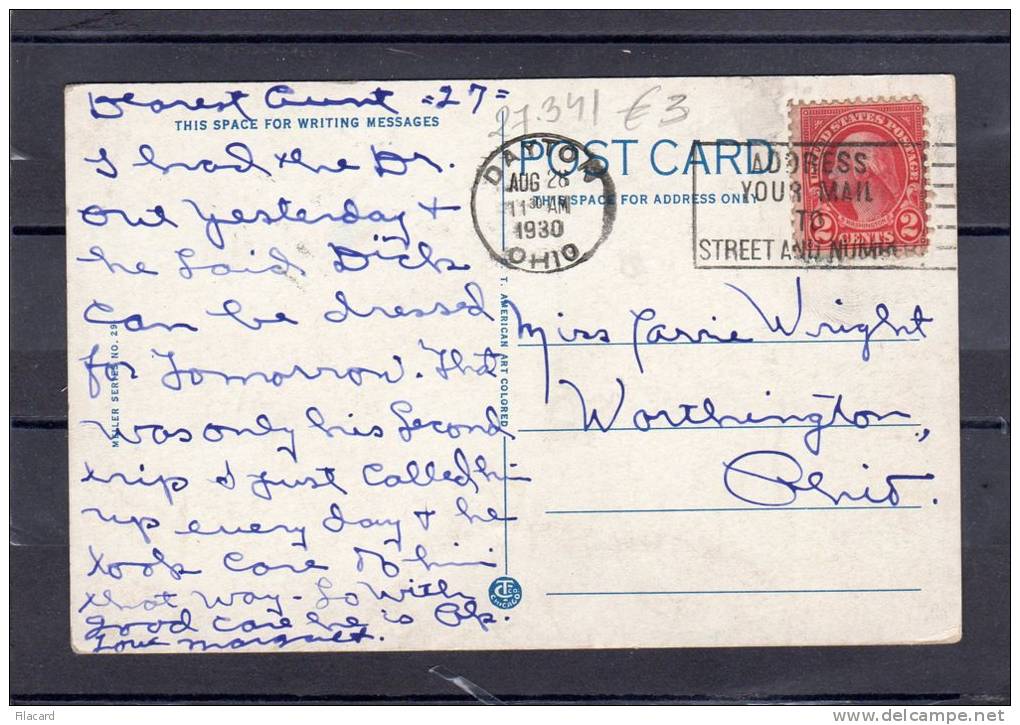 Dearest Aunt =27=
THIS SPACE FOR WRITING MESSAGES
I had the Dr.
out yesterday +
he said Dick
can be dressed
for Tomorrow. That
was only his second
trip I just called him
up every day + he
took care of him
that way - So with
good care he is
Love Margaret.
27.341 €3
POST CARD
THIS SPACE FOR ADDRESS ONLY
DAYTON
AUG 28
11 30 AM
1930
OHIO
ADDRESS
YOUR MAIL
TO
STREET AND NUMB
UNITED STATES POSTAGE
WASHINGTON
2 CENTS 2
Miss Carrie Wright
Worthington,
Ohio.
SERIES NO. 29
T. AMERICAN ART COLORED
CT
CHICAGO
Filacard
delcampe.net